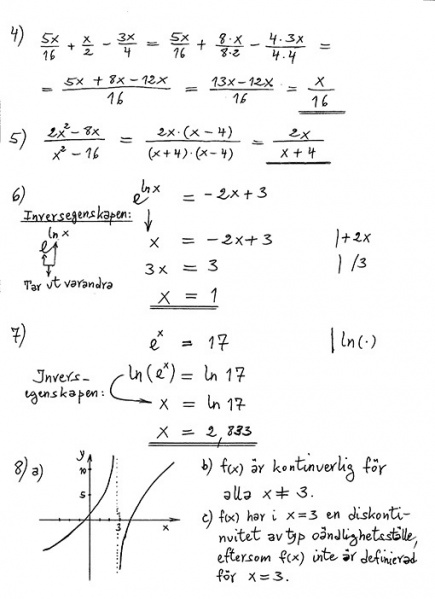 4) 5x/16 + x/2 - 3x/4 = 5x/16 + 8·x/8·2 - 4·3x/4·4 =
= 5x + 8x - 12x/16 = 13x-12x/16 = x/16
5) 2x²-8x/x²-16 = 2x·(x-4)/(x+4)·(x-4) = 2x/x+4
6) e^ln x = -2x+3
Inversegenskapen:
e^ln x
Tar ut varandra
x = -2x+3 |+2x
3x = 3 |/3
x = 1
7) e^x = 17 |ln(·)
Invers-
egenskapen:
ln(e^x) = ln 17
x = ln 17
x = 2,833
8) a)
y
10
5
3
x
b) f(x) är kontinuerlig för
alla x ≠ 3.
c) f(x) har i x=3 en diskonti-
nuitet av typ oändlighetsställe,
eftersom f(x) inte är definierad
för x=3.